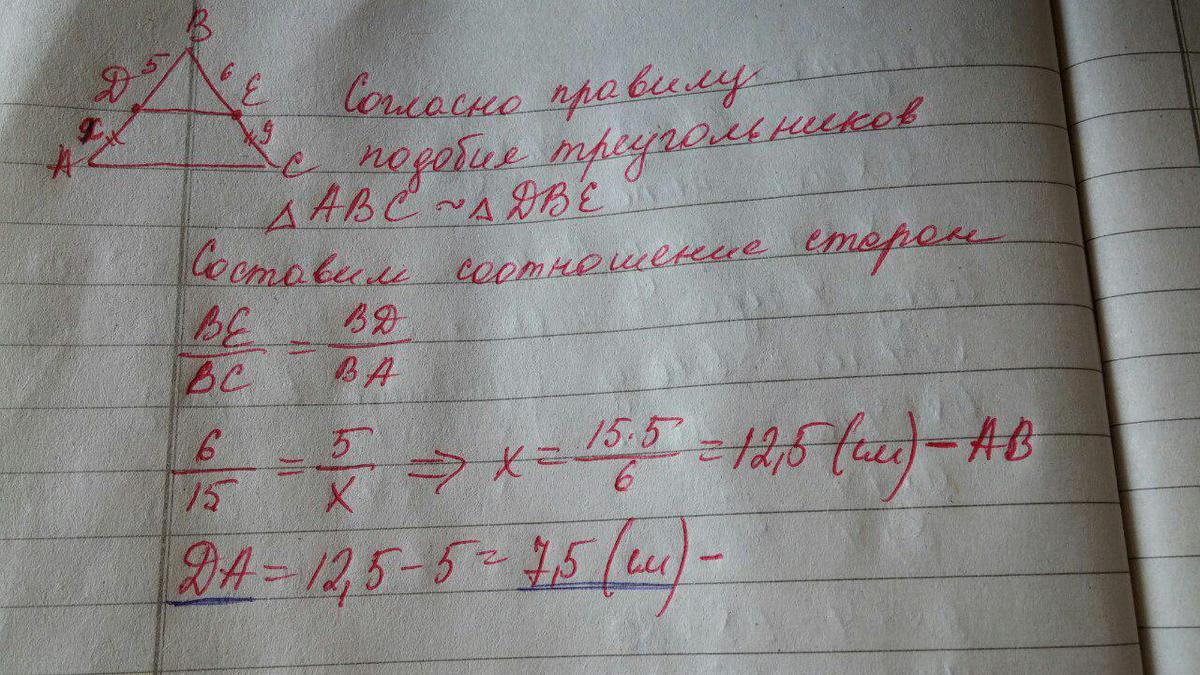 B
5 6
D E
x 9
A C
Согласно правилу
подобия треугольников
△ABC ~ △DBE
Составим соотношение сторон
BE/BC = BD/BA
6/15 = 5/x ⇒ x = 15·5/6 = 12,5 (см) – AB
DA = 12,5 - 5 = 7,5 (см) –